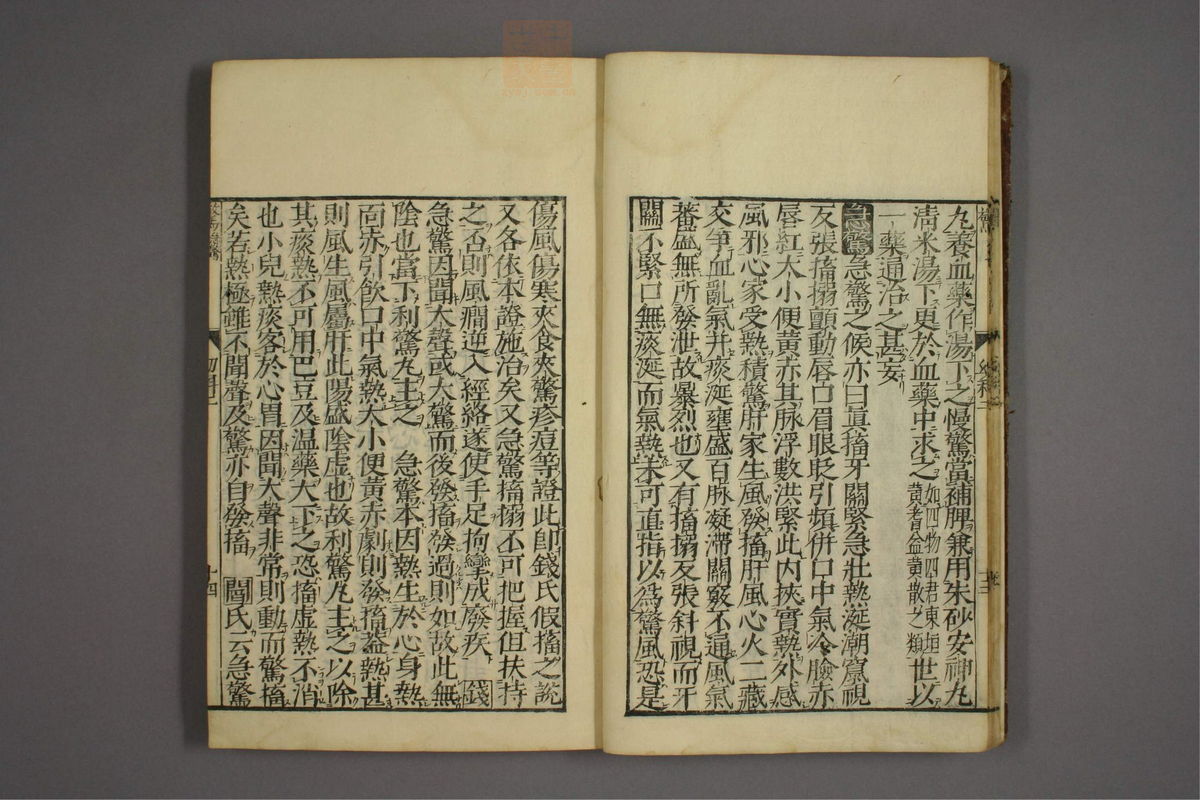 丸養血藥作湯下之慢驚當補脾兼用朱砂安神丸
清米湯下更於血藥中求之如四物四君東垣黃耆益黃散之類世以
一藥通治之甚妄
急驚急驚之候亦曰眞搐牙關緊急壯熱涎潮竄視
反張搐搦顫動唇口眉眼眨引頻併口中氣冷臉赤
唇紅大小便黃赤其脉浮數洪緊此内挾實熱外感
風邪心家受熱積驚肝家生風發搐肝風心火二藏
交爭血亂氣并痰涎壅盛百脉凝滯關竅不通風氣
蕃盛無所發泄故暴烈也又有搐搦反張斜視而牙
關不緊口無痰涎而氣熱未可直指以爲驚風恐是
傷風傷寒夾食夾驚疹痘等證此即錢氏假搐之說
又各依本證施治矣又急驚搐搦不可把握但扶持
之否則風癇逆入經絡遂使手足拘攣成廢疾 錢
急驚因聞大聲或大驚而後發搐發過則如故此無
陰也當下利驚丸主之 急驚本因熱生於心身熱
面赤引飲口中氣熱大小便黃赤劇則發搐蓋熱甚
則風生風屬肝此陽盛陰虚也故利驚丸主之以除
其痰熱不可用巴豆及温藥大下之恐搐虚熱不消
也小兒熱痰客於心胃因聞大聲非常則動而驚搐
矣若熱極雖不聞聲及驚亦自發搐 閻氏云急驚
十四